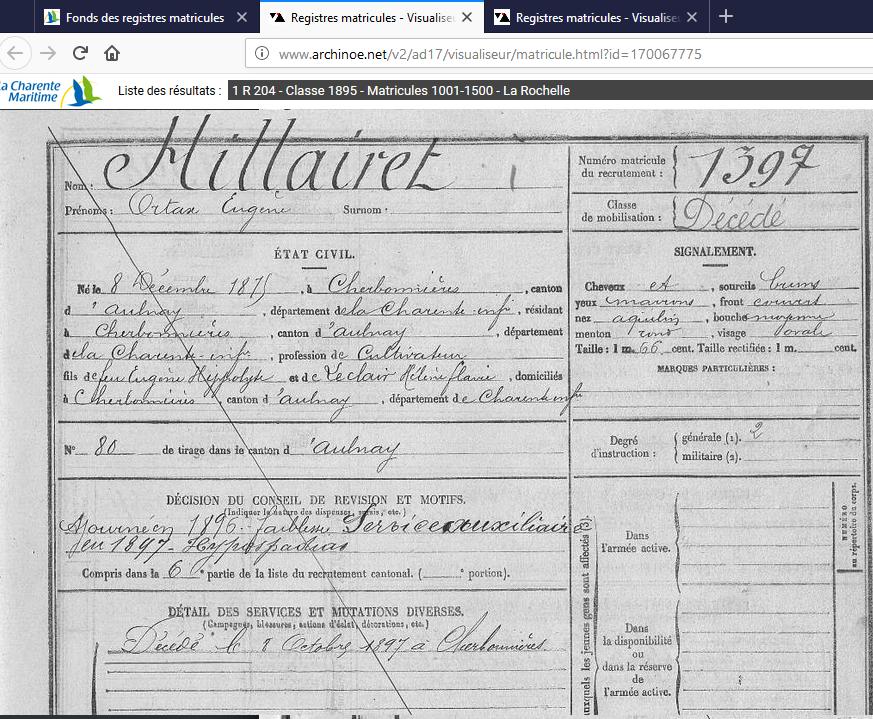 Fonds des registres matricules
Registres matricules - Visualise
Registres matricules - Visualise
www.archinoe.net/v2/ad17/visualiseur/matricule.html?id=170067775
La Charente Maritime
Liste des résultats : 1 R 204 - Classe 1895 - Matricules 1001-1500 - La Rochelle
Nom : Millairet 1
Prénoms : Ortax Eugène Surnom :
Numéro matricule du recrutement : 1397
Classe de mobilisation : Décédé
ÉTAT CIVIL.
Né le 8 Décembre 1875, à Cherbonnières, canton
d'aulnay, département de la Charente-infre, résidant
à Cherbonnières, canton d'aulnay, département
de la Charente-infre, profession de Cultivateur
fils de feu Eugène Hippolyte et de Léclair Hélène flavie, domiciliés
à Cherbonnières, canton d'aulnay, département de Charente infre
N° 80 de tirage dans le canton d'aulnay
DÉCISION DU CONSEIL DE REVISION ET MOTIFS.
(Indiquer la nature des dispenses, sursis, etc.)
Ajourné en 1896 - faiblesse Service auxiliaire
en 1897 - Hypospadias
Compris dans la 6e partie de la liste du recrutement cantonal. ( e portion).
DÉTAIL DES SERVICES ET MUTATIONS DIVERSES.
(Campagnes, blessures, actions d'éclat, décorations, etc.)
Décédé le 8 Octobre 1897 à Cherbonnières
SIGNALEMENT.
Cheveux et, sourcils bruns
yeux marrons, front couvert
nez aquilin, bouche moyenne
menton rond, visage ovale
Taille : 1 m. 66 cent. Taille rectifiée : 1 m. cent.
MARQUES PARTICULIÈRES :
Degré d'instruction : générale (1). 2
militaire (2).
uxquels les jeunes gens sont affectés (3).
Dans
l'armée active.
Dans
la disponibilité
ou
dans la réserve
de
l'armée active.
NUMÉRO
au répertoire du corps.